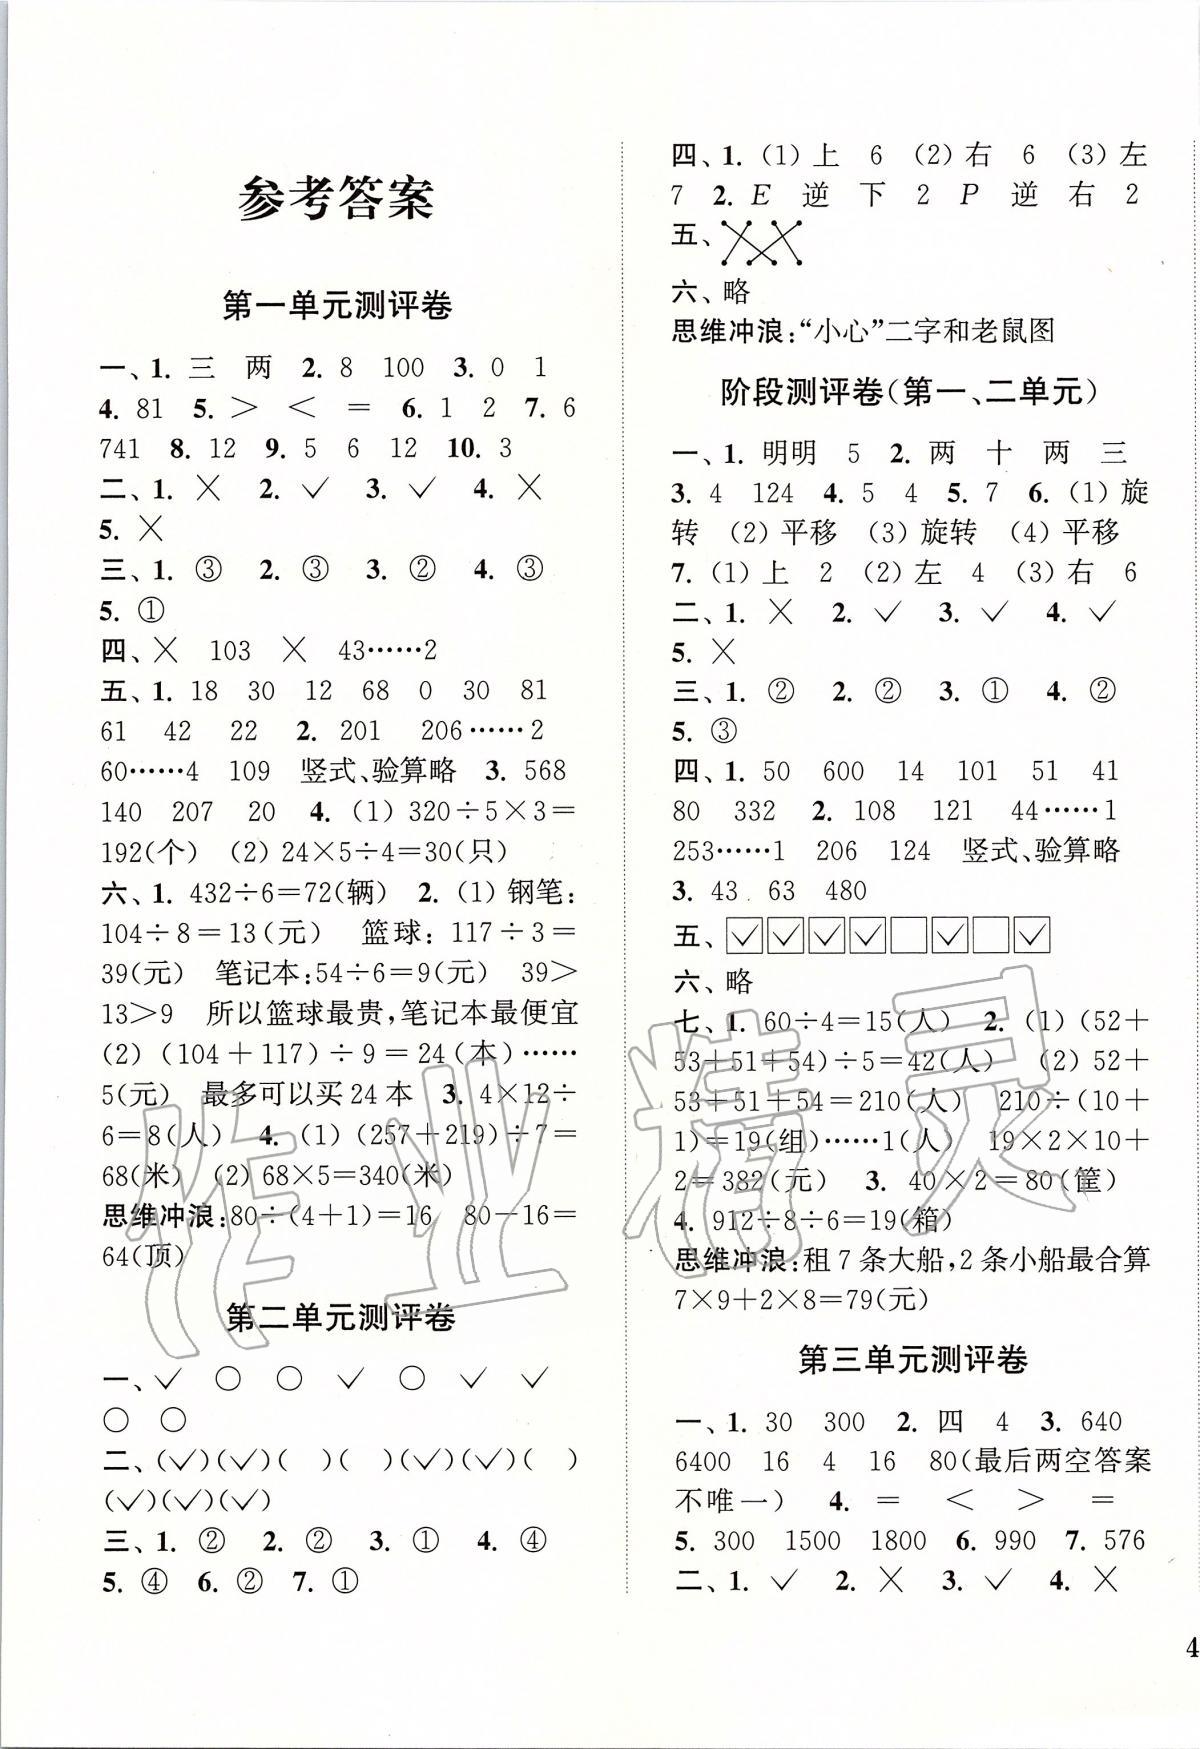 参考答案
第一单元测评卷
一、1. 三 两 2. 8 100 3. 0 1
4. 81 5. ＞ ＜ ＝ 6. 1 2 7. 6
741 8. 12 9. 5 6 12 10. 3
二、1. ╳ 2. ✓ 3. ✓ 4. ╳
5. ╳
三、1. ③ 2. ③ 3. ② 4. ③
5. ①
四、╳ 103 ╳ 43……2
五、1. 18 30 12 68 0 30 81
61 42 22 2. 201 206……2
60……4 109 竖式、验算略 3. 568
140 207 20 4. (1) 320÷5×3＝
192(个) (2) 24×5÷4＝30(只)
六、1. 432÷6＝72(辆) 2. (1) 钢笔：
104÷8＝13(元) 篮球：117÷3＝
39(元) 笔记本：54÷6＝9(元) 39＞
13＞9 所以篮球最贵，笔记本最便宜
(2) (104＋117)÷9＝24(本)……
5(元) 最多可以买24本 3. 4×12÷
6＝8(人) 4. (1) (257＋219)÷7＝
68(米) (2) 68×5＝340(米)
思维冲浪：80÷(4＋1)＝16 80－16＝
64(顶)
第二单元测评卷
一、✓ ○ ○ ✓ ○ ✓ ✓
○ ○
二、(✓)(✓)( )( )(✓)(✓)( )
(✓)(✓)(✓)
三、1. ② 2. ② 3. ① 4. ④
5. ④ 6. ② 7. ①
四、1. (1) 上 6 (2) 右 6 (3) 左
7 2. E 逆 下 2 P 逆 右 2
五、
六、略
思维冲浪：“小心”二字和老鼠图
阶段测评卷(第一、二单元)
一、1. 明明 5 2. 两 十 两 三
3. 4 124 4. 5 4 5. 7 6. (1) 旋
转 (2) 平移 (3) 旋转 (4) 平移
7. (1) 上 2 (2) 左 4 (3) 右 6
二、1. ╳ 2. ✓ 3. ✓ 4. ✓
5. ╳
三、1. ② 2. ② 3. ① 4. ②
5. ③
四、1. 50 600 14 101 51 41
80 332 2. 108 121 44……1
253……1 206 124 竖式、验算略
3. 43 63 480
五、☑☑☑☑☐☑☐☑
六、略
七、1. 60÷4＝15(人) 2. (1) (52＋
53＋51＋54)÷5＝42(人) (2) 52＋
53＋51＋54＝210(人) 210÷(10＋
1)＝19(组)……1(人) 19×2×10＋
2＝382(元) 3. 40×2＝80(筐)
4. 912÷8÷6＝19(箱)
思维冲浪：租7条大船，2条小船最合算
7×9＋2×8＝79(元)
第三单元测评卷
一、1. 30 300 2. 四 4 3. 640
6400 16 4 16 80(最后两空答案
不唯一) 4. ＝ ＜ ＞ ＝
5. 300 1500 1800 6. 990 7. 576
二、1. ✓ 2. ╳ 3. ✓ 4. ╳
4
作业精灵